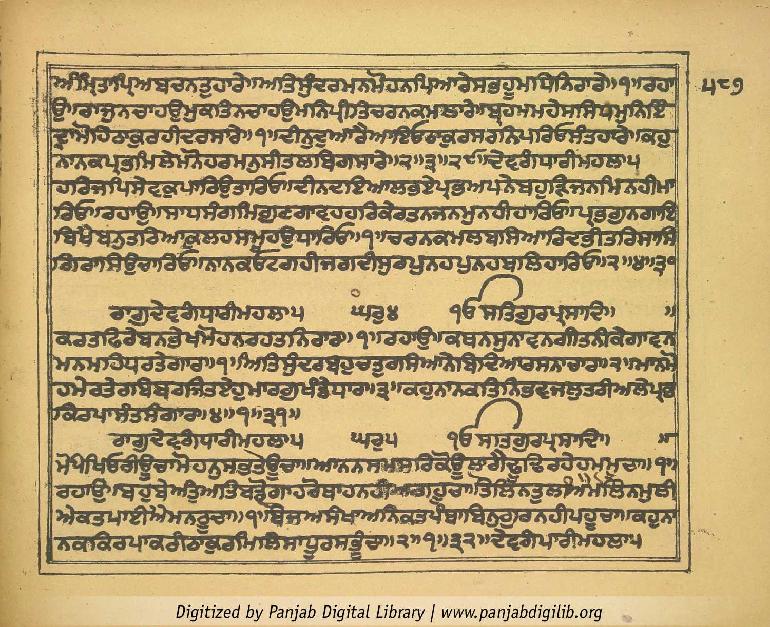 ਅੰਮ੍ਰਿਤਾਪ੍ਰਿਅਬਚਨਤੁਹਾਰੇ॥ਅਤਿਸੁੰਦਰਮਨਮੋਹਨਪਿਆਰੇਸਭਹੂਮਧਿਨਿਰਾਰੇ॥੧॥ਰਹਾ ੫੮੭
ਉ॥ਰਾਜੁਨਚਾਹਉਮੁਕਤਿਨਚਾਹਉਮਨਿਪ੍ਰੀਤਿਚਰਨਕਮਲਾਰੇ॥ਬ੍ਰਹਮਮਹੇਸਸਿਧਮੁਨਿਇੰ
ਦ੍ਰਾਮੋਹਿਠਾਕੁਰਹੀਦਰਸਾਰੇ॥੧॥ਦੀਨੁਦੁਆਰੈਆਇਓਠਾਕੁਰਸਰਨਿਪਰਿਓਸੰਤਹਾਰੇ॥ਕਹੁ
ਨਾਨਕਪ੍ਰਭਮਿਲੇਮਨੋਹਰਮਨੁਸੀਤਲਬਿਗਸਾਰੇ॥੨॥੩॥੨੯॥ਦੇਵਗੰਧਾਰੀਮਹਲਾ੫
ਹਰਿਜਪਿਸੇਵਕੁਪਾਰਿਉਤਾਰਿਓ॥ਦੀਨਦਇਆਲਭਏਪ੍ਰਭਅਪਨੇਬਹੁੜਿਜਨਮਿਨਹੀਮਾ
ਰਿਓ॥ਰਹਾਉ॥ਸਾਧਸੰਗਮਿਗੁਣਗਾਵਹਹਰਿਕੇਰਤਨਜਨਮੁਨਹੀਹਾਰਿਓ॥ਪ੍ਰਭਗੁਨਗਾਇ
ਬਿਖੈਬਨੁਤਰਿਆਕੁਲਹਸਮੂਹਉਧਾਰਿਓ॥੧॥ਚਰਨਕਮਲਬਸਿਆਰਿਦਭੀਤਰਿਸਾਸਿ
ਗਿਰਾਸਿਉਚਾਰਿਓ॥ਨਾਨਕਓਟਗਹੀਜਗਦੀਸੁਰਪੁਨਹਪੁਨਹਬਲਿਹਾਰਿਓ॥੨॥੪॥੩੦
ਰਾਗੁਦੇਵਗੰਧਾਰੀਮਹਲਾ੫ ਘਰੁ੪ ੴ ਸਤਿਗੁਰਪ੍ਰਸਾਦਿ॥ ॥
ਕਰਤਫਿਰੇਬਨਭੇਖਮੋਹਨਰਹਤਨਿਰਾਰ॥੧॥ਰਹਾਉ॥ਕਥਨਸੁਨਾਵਨਗੀਤਨੀਕੇਗਾਵਨ
ਮਨਮਹਿਧਰਤੇਗਾਰ॥੧॥ਅਤਿਸੁੰਦਰਬਹੁਚਤੁਰਸਿਆਨੇਬਿਦਿਆਰਸਨਾਚਾਰ॥੨॥ਮਾਨਮੋ
ਹਮੇਰਤੇਰਬਿਬਰਜਿਤਏਹੁਮਾਰਗੁਖੰਡੇਧਾਰ॥੩॥ਕਹੁਨਾਨਕਤਿਨਿਭਵਜਲੁਤਰੀਅਲੇਪ੍ਰਭ
ਕਿਰਪਾਸੰਤਸੰਗਾਰ॥੪॥੧॥੩੧॥
ਰਾਗੁਦੇਵਗੰਧਾਰੀਮਹਲਾ੫ ਘਰੁ੫ ੴ ਸਤਿਗੁਰਪ੍ਰਸਾਦਿ॥ ॥
ਮੈਪੇਖਿਓਰੀਊਚਾਮੋਹਨੁਸਭਤੇਊਚਾ॥ਆਨਨਸਮਸਰਿਕੋਊਲਾਗੈਢੂਢਿਰਹੇਹਮਮੂਚਾ॥੧॥
ਰਹਾਉ॥ਬਹੁਬੇਅੰਤੁਅਤਿਬਡੋਗਾਹਰੋਥਾਹਨਹੀਅਗਹੂਚਾ॥ਤੋਲਿਨਤੁਲੀਐਮੋਲਿਨਮੁਲੀ
ਐਕਤਪਾਈਐਮਨਰੂਚਾ॥੧॥ਖੋਜਅਸੰਖਾਅਨਿਕਤਪੰਥਾਬਿਨੁਗੁਰਨਹੀਪਹੂਚਾ॥ਕਹੁਨਾ
ਨਕਕਿਰਪਾਕਰੀਠਾਕੁਰਮਿਲਿਸਾਧੂਰਸਭੂੰਚਾ॥੨॥੧॥੩੨॥ਦੇਵਗੰਧਾਰੀਮਹਲਾ੫
Digitized by Panjab Digital Library | www.panjabdigilib.org